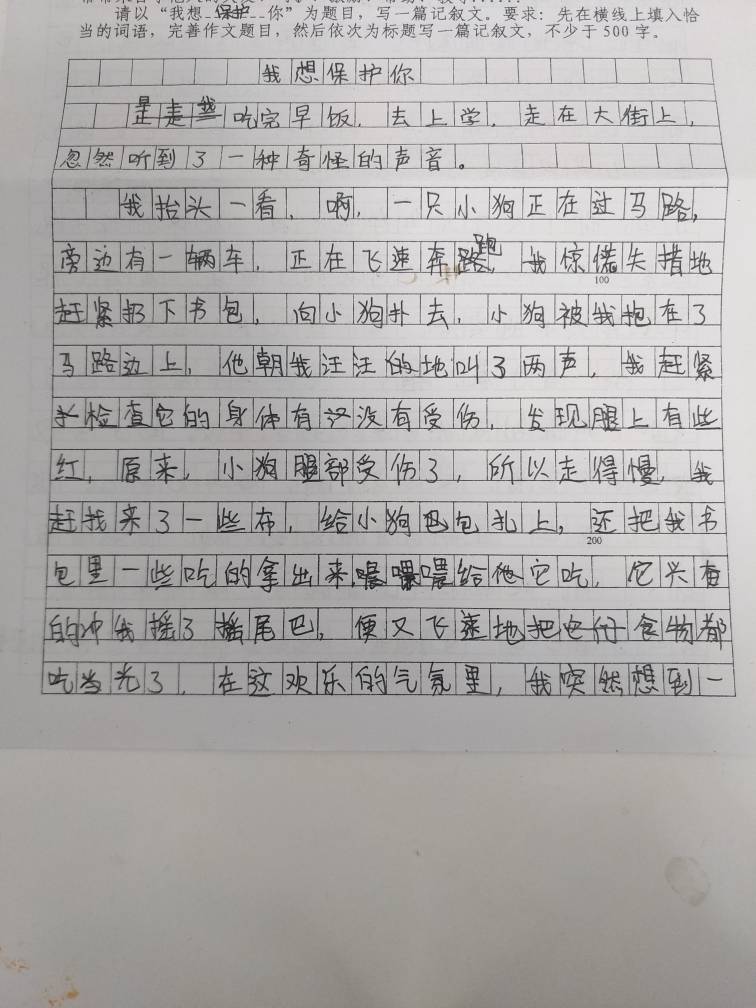 请以“我想 保护 你”为题目，写一篇记叙文。要求：先在横线上填入恰
当的词语，完善作文题目，然后依次为标题写一篇记叙文，不少于500字。
我想保护你
我吃完早饭，去上学，走在大街上，
忽然听到了一种奇怪的声音。
我抬头一看，啊，一只小狗正在过马路，
旁边有一辆车，正在飞速奔跑，我惊慌失措地
100
赶紧扔下书包，向小狗扑去，小狗被我抱在了
马路边上，他朝我汪汪的地叫了两声，我赶紧
检查它的身体有没有受伤，发现腿上有些
红，原来，小狗腿部受伤了，所以走得慢，我
赶找来了一些布，给小狗包扎上，还把我书
200
包里一些吃的拿出来，喂给它吃，它兴奋
的冲我摇了摇尾巴，便又飞速地把食物都
吃光了，在这欢乐的气氛里，我突然想到一